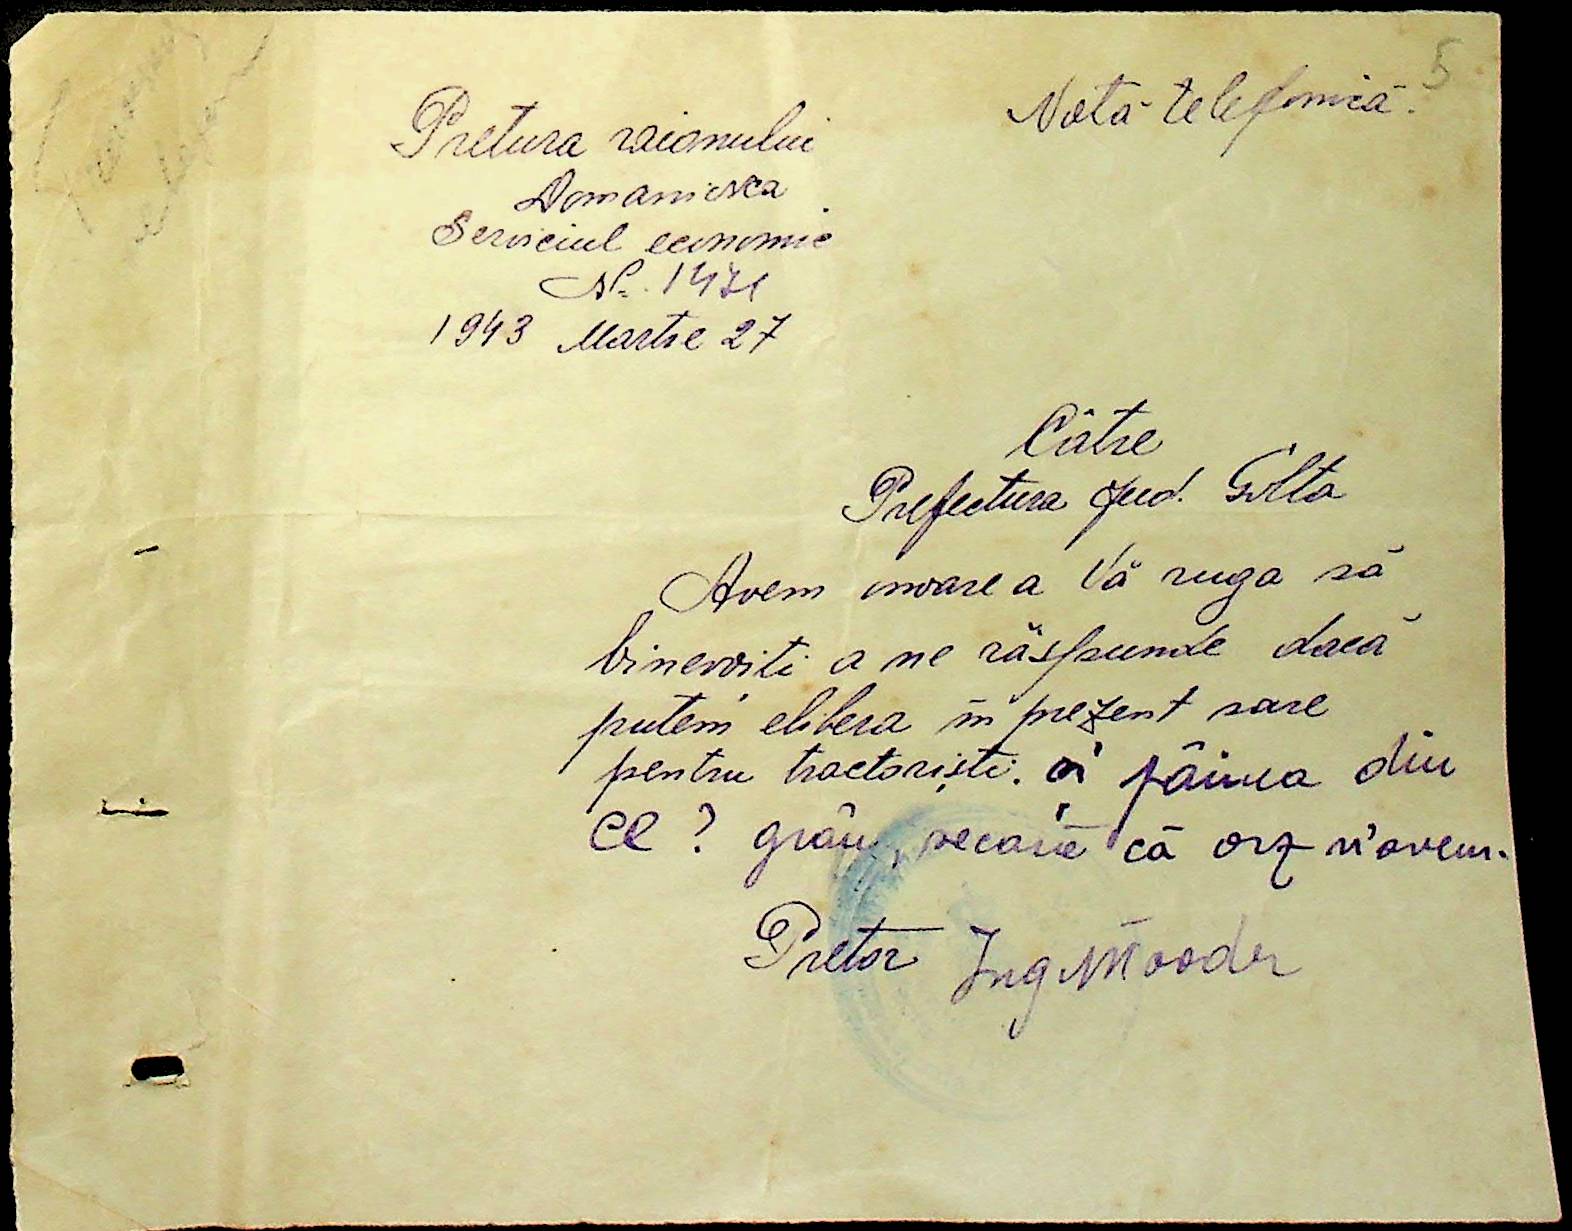 5
Notă telefonică.
Pretura raionului
Domaniewca
Serviciul economic
No. 1471
1943 Martie 27
Către
Prefectura jud. Golta
Avem onoare a Vă ruga să
binevoiti a ne răspunde dacă
putem elibera în prezent sare
pentru tractoriști. și pâinea din
ce? grâu, secară că orz n'avem.
Pretor Ing